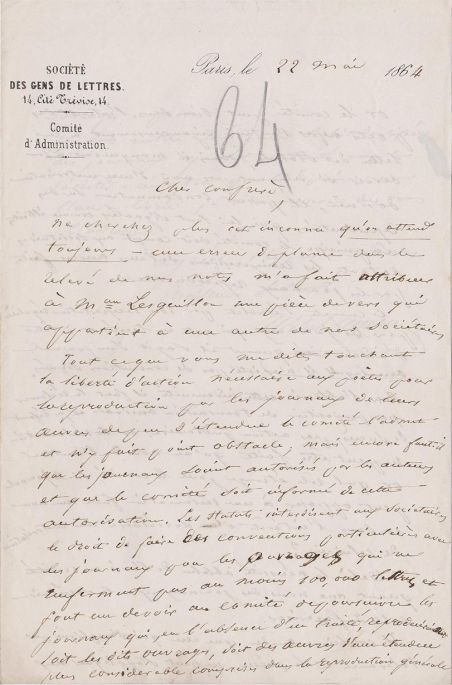 SOCIÉTÉ
DES GENS DE LETTRES.
14, Cité Trévise, 14.
Comité
d'Administration
Paris, le 22 Mai 1864
64
Cher confrère,
Ne cherchez plus cet inconnu qu'on attend
toujours — une erreur de plume dans le
relevé de nos nots m'a fait attribuer
à Mme Lesguillon une pièce de vers qui
appartient à une autre de nos sociétaires
Tout ce que vous me dites touchant
la liberté d'action nécessaire aux poètes pour
la reproduction par les journaux de leurs
œuvres de peu d'étendue le comité l'admet
et n'y fait point obstacle, mais encore faut-il
que les journaux soient autorisés par les auteurs
et que le comité soit informé de cette
autorisation. Les statuts interdisent aux sociétaires
le droit de faire des conventions particulières avec
les journaux pour les ouvrages qui ne
renferment pas au moins 100,000 lettres et
font un devoir au comité de poursuivre les
journaux qui, en l'absence d'un traité, reproduiraient
soit les dits ouvrages, soit des œuvres d'une étendue
plus considérable comprises dans la reproduction générale